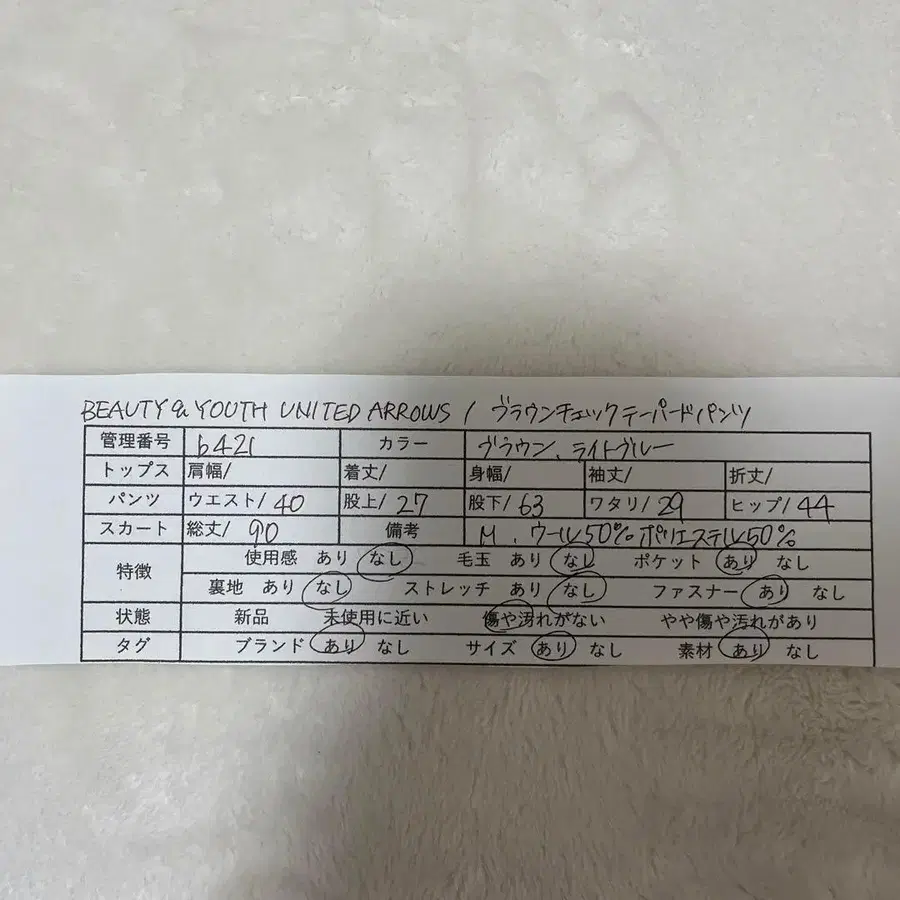 BEAUTY & YOUTH UNITED ARROWS / ブラウンチェックテーパードパンツ
管理番号 b421 カラー ブラウン、ライトブルー
トップス 肩幅/ 着丈/ 身幅/ 袖丈/ 折丈/
パンツ ウエスト/ 40 股上/ 27 股下/ 63 ワタリ/ 29 ヒップ/ 44
スカート 総丈/ 90 備考 M、ウール50%ポリエステル50%
特徴 使用感 あり なし 毛玉 あり なし ポケット あり なし
裏地 あり なし ストレッチ あり なし ファスナー あり なし
状態 新品 未使用に近い 傷や汚れがない やや傷や汚れがあり
タグ ブランド あり なし サイズ あり なし 素材 あり なし